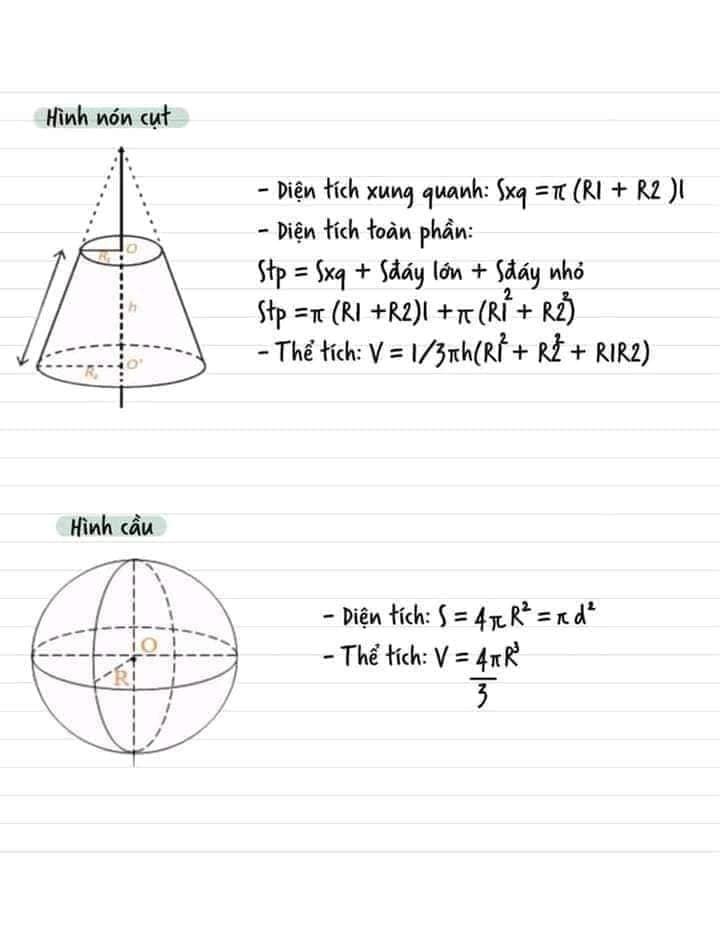 Hình nón cụt
- Diện tích xung quanh: Sxq = π (R1 + R2 )l
- Diện tích toàn phần:
Stp = Sxq + Sđáy lớn + Sđáy nhỏ
Stp = π (R1 +R2)l + π (R1² + R2²)
- Thể tích: V = 1/3πh(R1² + R2² + R1R2)
O
R₁
h
O'
R₂
Hình cầu
- Diện tích: S = 4πR² = πd²
- Thể tích: V = 4πR³
3
O
R